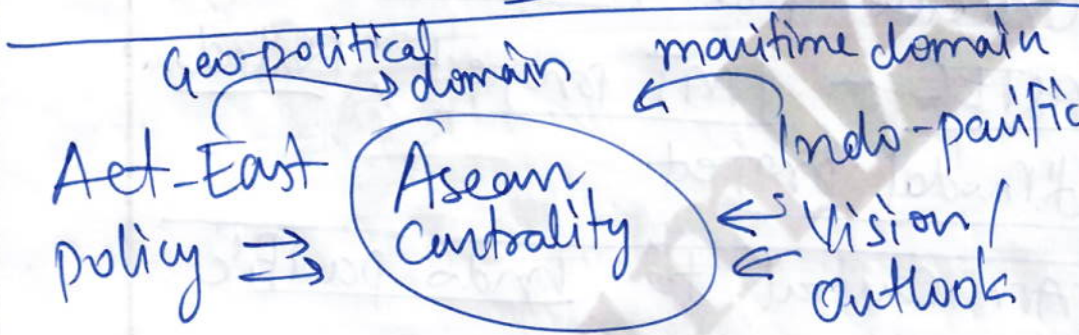 Geo-political
domain
maritime domain
Act-East
policy
Asean
Centrality
Indo-pacific
Vision/
Outlook